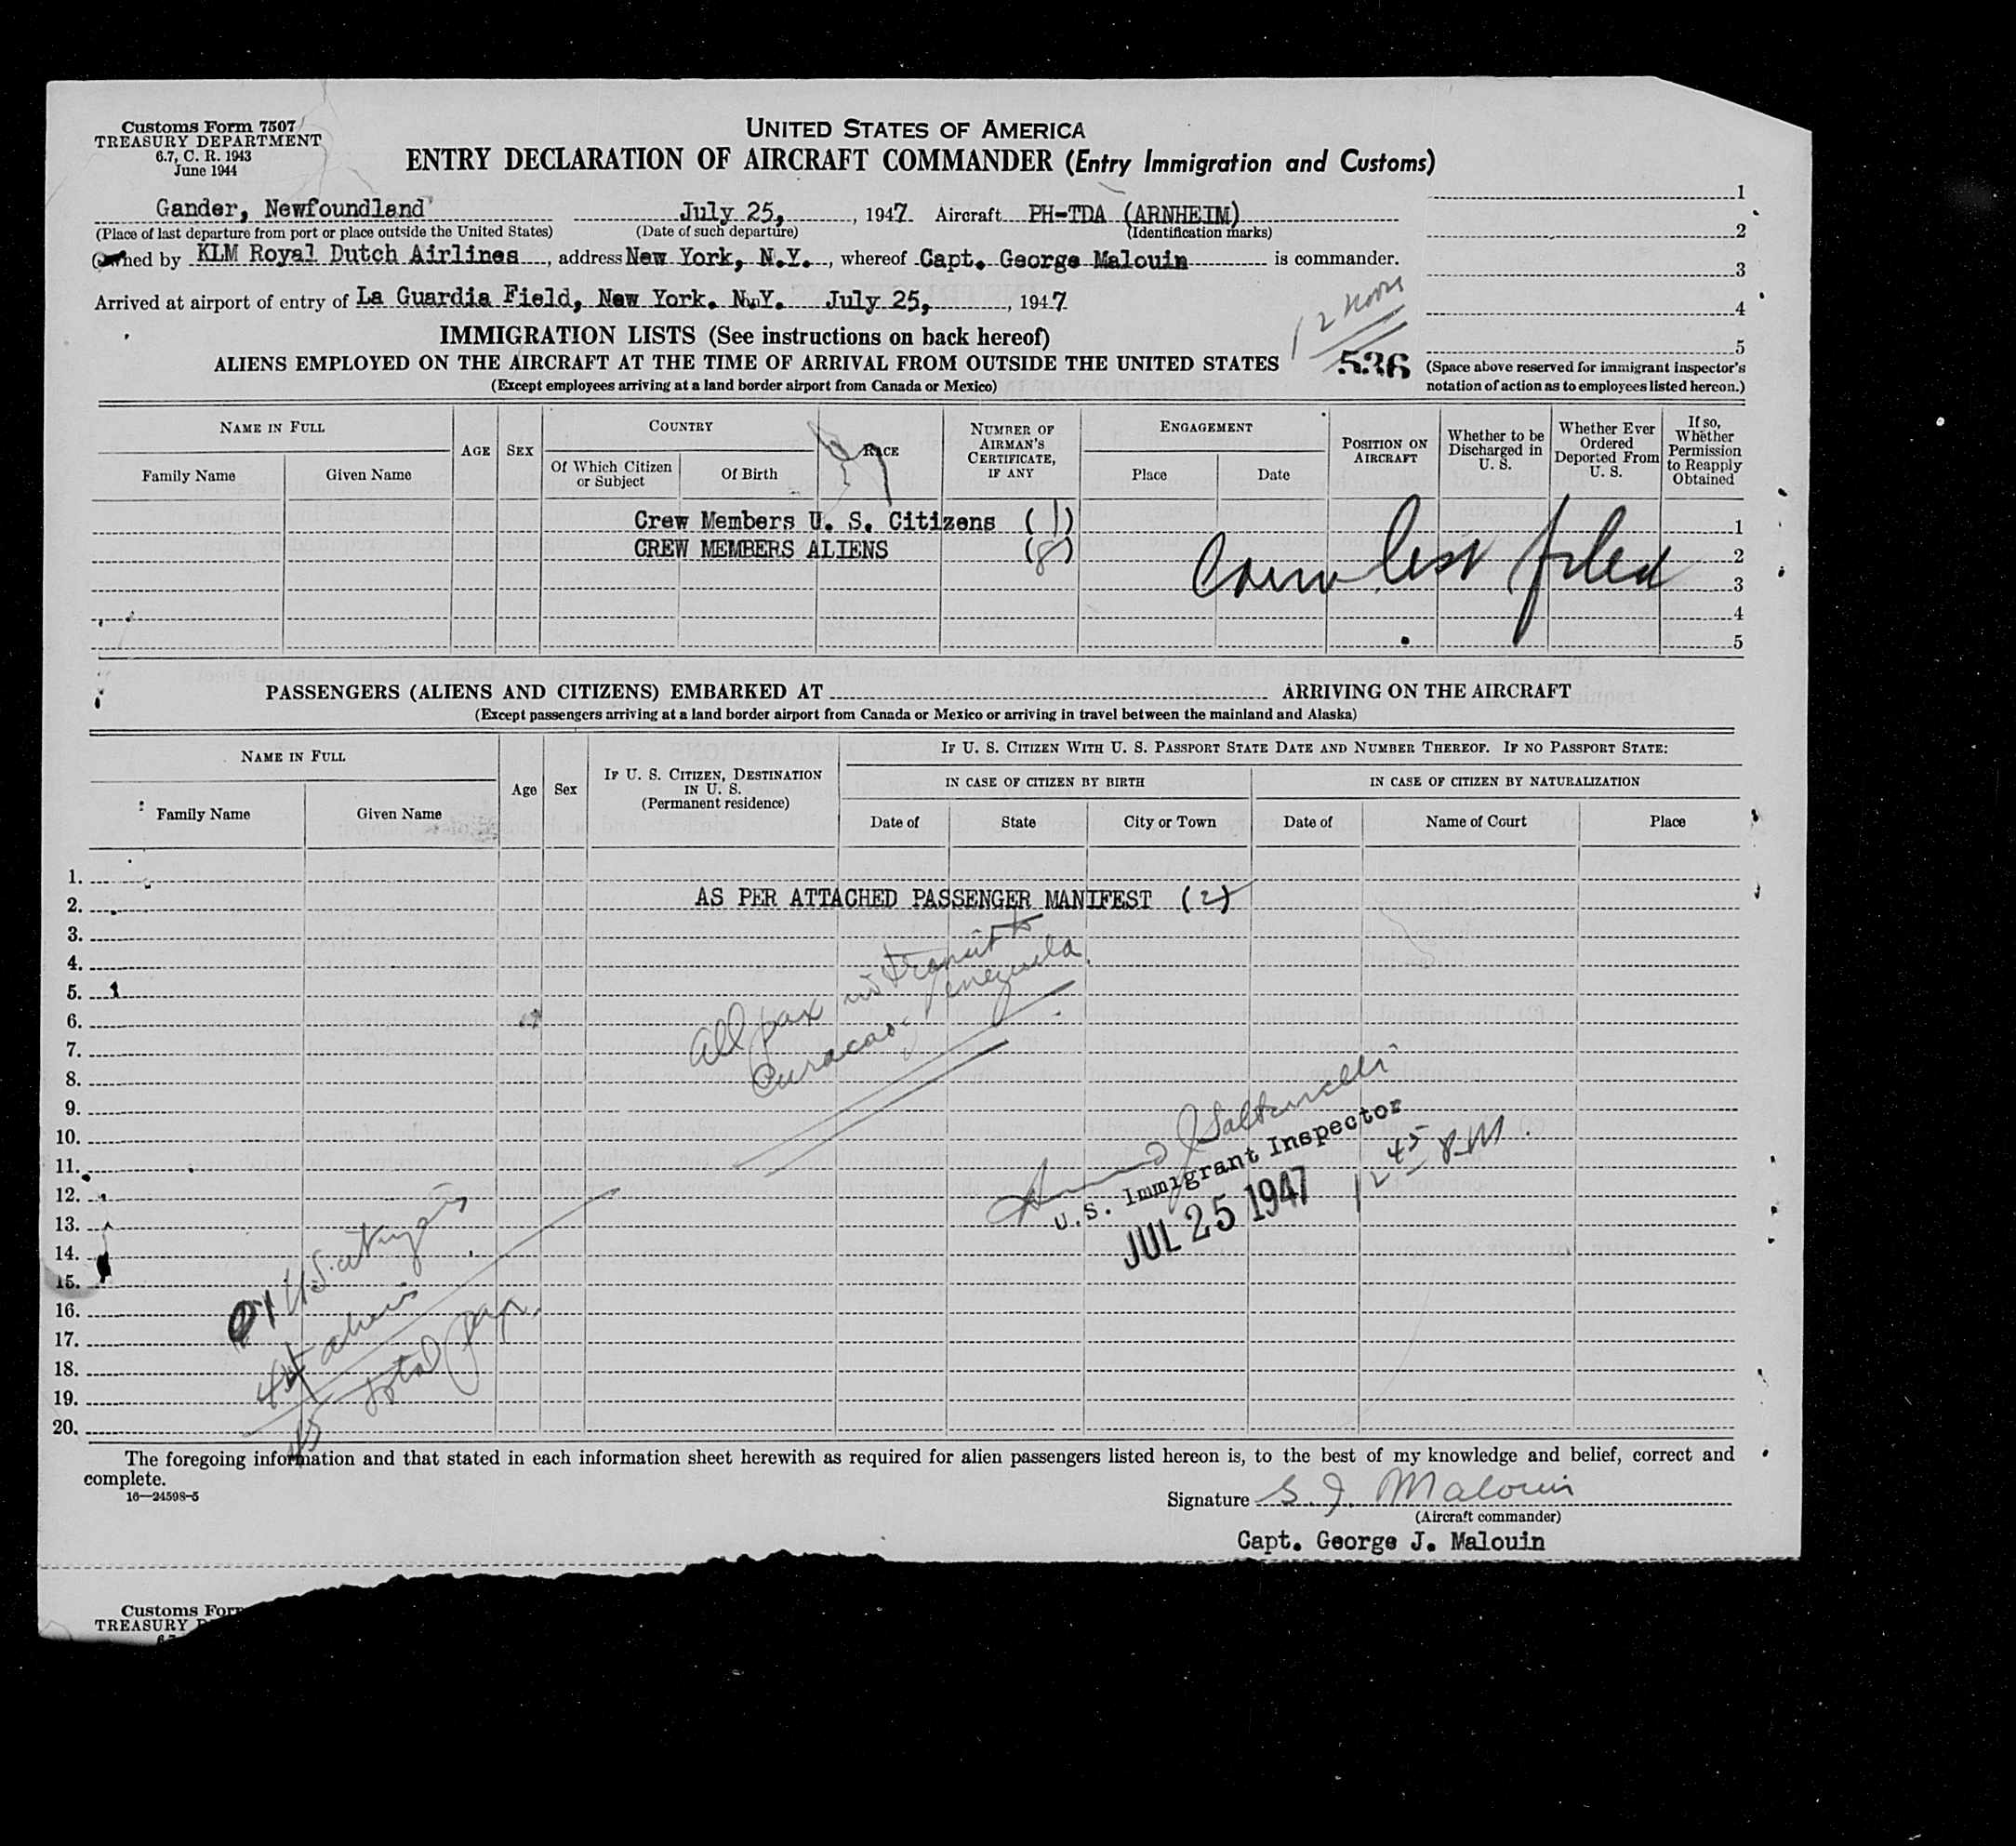 Customs Form 7507
TREASURY DEPARTMENT
6.7, C. R. 1943
June 1944
UNITED STATES OF AMERICA
ENTRY DECLARATION OF AIRCRAFT COMMANDER (Entry Immigration and Customs)
Gander, Newfoundland July 25, , 1947 Aircraft PH-TDA (ARNHEIM)
(Place of last departure from port or place outside the United States) (Date of such departure) (Identification marks)
(Owned by KLM Royal Dutch Airlines , address New York, N.Y. , whereof Capt. George Malouin is commander.
Arrived at airport of entry of La Guardia Field, New York. N.Y. July 25, , 1947
1
2
3
4
5
12 noon
536
(Space above reserved for immigrant inspector's
notation of action as to employees listed hereon.)
IMMIGRATION LISTS (See instructions on back hereof)
ALIENS EMPLOYED ON THE AIRCRAFT AT THE TIME OF ARRIVAL FROM OUTSIDE THE UNITED STATES
(Except employees arriving at a land border airport from Canada or Mexico)
NAME IN FULL
Family Name Given Name
AGE SEX
COUNTRY
Of Which Citizen or Subject Of Birth
RACE
NUMBER OF AIRMAN'S CERTIFICATE, IF ANY
ENGAGEMENT
Place Date
POSITION ON AIRCRAFT
Whether to be Discharged in U. S.
Whether Ever Ordered Deported From U. S.
If so, Whether Permission to Reapply Obtained
Crew Members U. S. Citizens (1) 1
CREW MEMBERS ALIENS (8) 2
list filed
3
4
5
PASSENGERS (ALIENS AND CITIZENS) EMBARKED AT ARRIVING ON THE AIRCRAFT
(Except passengers arriving at a land border airport from Canada or Mexico or arriving in travel between the mainland and Alaska)
NAME IN FULL
Family Name Given Name
Age Sex
IF U. S. CITIZEN, DESTINATION IN U. S.
(Permanent residence)
IF U. S. CITIZEN WITH U. S. PASSPORT STATE DATE AND NUMBER THEREOF. IF NO PASSPORT STATE:
IN CASE OF CITIZEN BY BIRTH IN CASE OF CITIZEN BY NATURALIZATION
Date of State City or Town Date of Name of Court Place
1.
2. AS PER ATTACHED PASSENGER MANIFEST (2)
3.
4.
5.
6.
7.
8.
9.
10.
11.
12.
13.
14.
15.
16.
17.
18.
19.
20.
All pax in transit to
Curacao, Venezuela.
U.S. Immigrant Inspector
JUL 25 1947
12 45 PM.
U.S. citizens
aliens
total pax.
The foregoing information and that stated in each information sheet herewith as required for alien passengers listed hereon is, to the best of my knowledge and belief, correct and
complete.
16—24598-5
Signature G. J. Malouin
(Aircraft commander)
Capt. George J. Malouin
Customs For
TREASURY